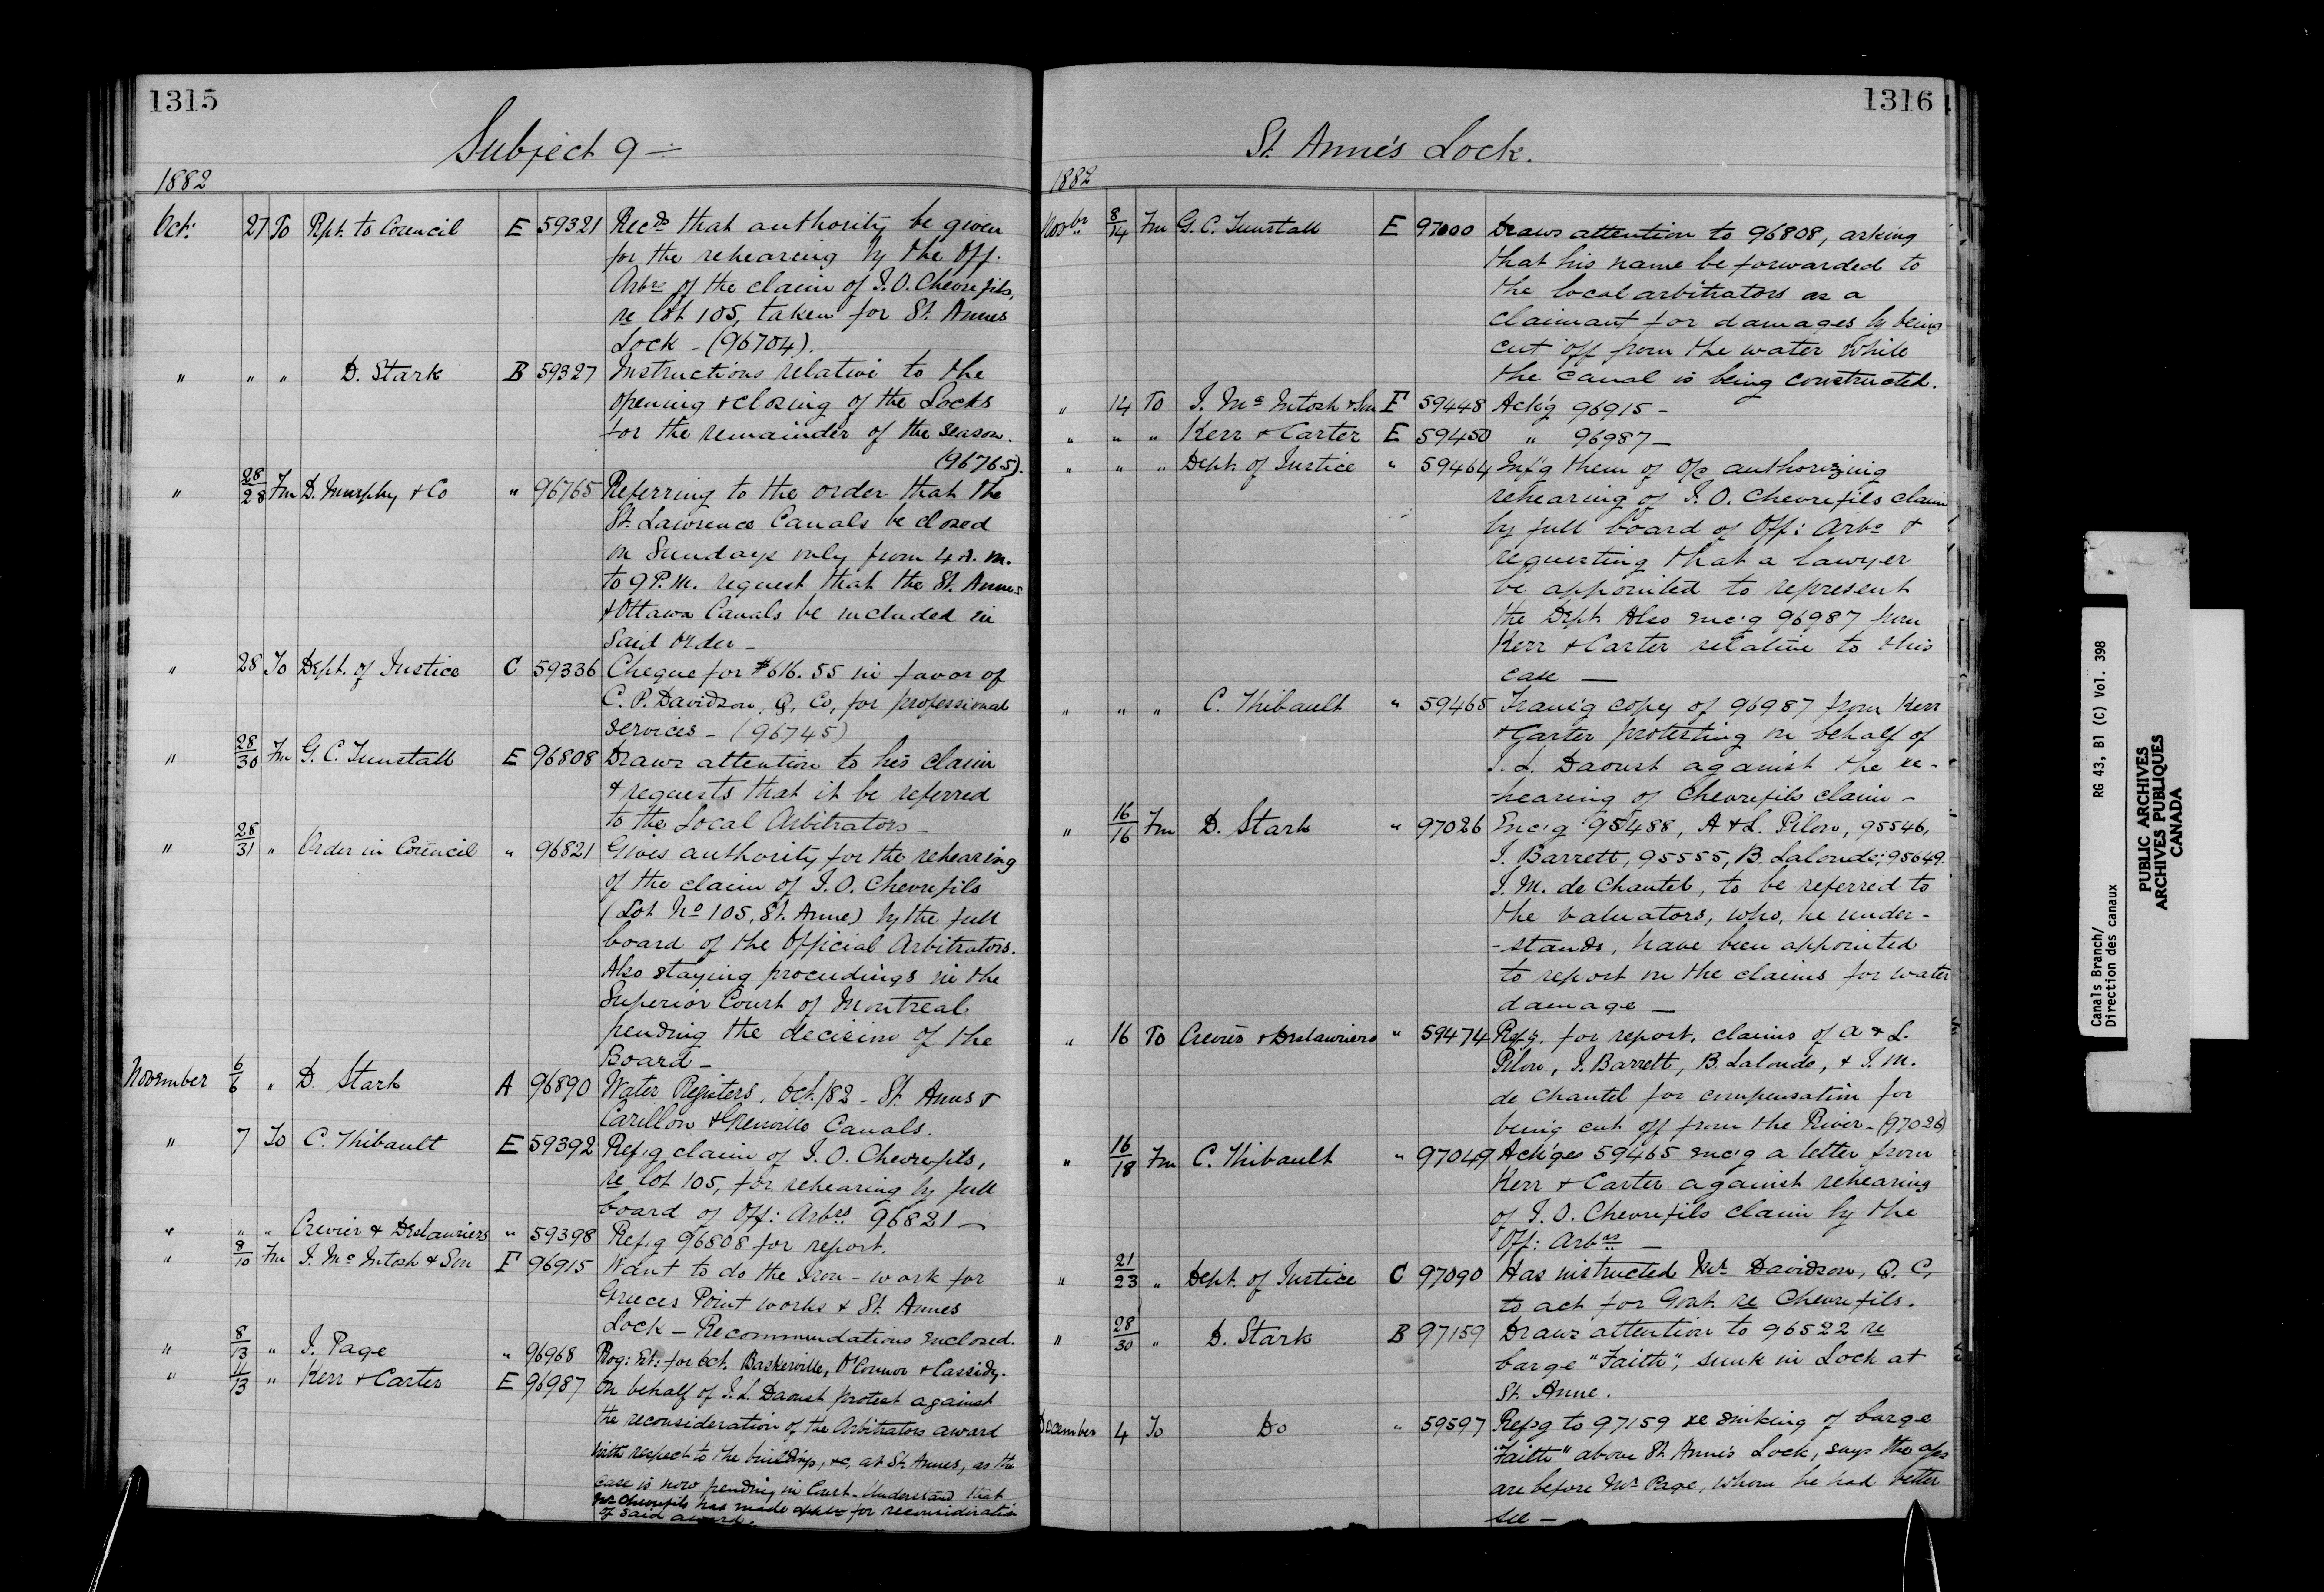 1315
Subject 9 —
1882
Oct: 27 To Rpt. to Council E 59321 Recds that authority be given
for the rehearing by the Off.
Arbrs of the claim of J.O. Chevrefils,
re lot 105, taken for St. Annes
Lock - (96704).
" " " D. Stark B 59327 Instructions relative to the
opening & closing of the Locks
for the remainder of the season.
(96765).
" 28/28 Fm D. Murphy & Co " 96765 Referring to the order that the
St. Lawrence Canals be closed
on Sundays only from 4 A.M.
to 9 P.M. request that the St. Annes
& Ottawa Canals be included in
said order -
" 28 To Dept. of Justice C 59336 Cheque for $616.55 in favor of
C. P. Davidson, Q, Co, for professional
services - (96745)
" 28/30 Fm G. C. Tunstall E 96808 Draws attention to his claim
& requests that it be referred
to the Local Arbitrators -
" 28/31 " Order in Council " 96821 Gives authority for the rehearing
of the claim of J. O. Chevrefils
(Lot No 105, St. Anne) by the full
board of the Official Arbitrators.
Also staying proceedings in the
Superior Court of Montreal
pending the decision of the
Board -
November 6/6 " D. Stark A 96890 Water Registers, Oct./82 - St. Annes &
Carillon & Grenville Canals.
" 7 To C. Thibault E 59392 Ref'g claim of J. O. Chevrefils,
re lot 105, for rehearing by full
board of Off: Arbrs 96821 -
" " " Crevier & Deslauriers " 59398 Ref'g 96808 for report.
" 8/10 Fm J. Mc Intosh & Son F 96915 Want to do the Iron-work for
Greeces Point works & St. Annes
Lock - Recommendations enclosed.
" 8/13 " J. Page " 96968 Prog: Est: for Oct. Baskerville, O'Connor & Cassidy.
" 11/13 " Kerr & Carter E 96987 On behalf of J. L. Daoust protest against
the reconsideration of the Arbitrators award
with respect to the buildings, &c, at St. Annes, as the
case is now pending in Court. Understand that
Mr Chevrefils has made for reconsideration
of said award.
1316
St. Anne's Lock.
1882
Novbr 8/14 Fm G. C. Tunstall E 97000 Draws attention to 96808, asking
that his name be forwarded to
the local arbitrators as a
claimant for damages by being
cut off from the water while
the canal is being constructed.
" 14 To J. Mc Intosh & Son F 59448 Ack'g 96915 -
" " " Kerr & Carter E 59450 " 96987 -
" " " Dept. of Justice " 59464 Inf'g them of O/C authorizing
rehearing of J. O. Chevrefils claim
by full board of Off: Arbs &
requesting that a lawyer
be appointed to represent
the Dept. Also enc'g 96987 from
Kerr & Carter relative to this
case —
" " " C. Thibault " 59465 Trans'g copy of 96987 from Kerr
& Carter protesting on behalf of
J. L. Daoust against the re-
-hearing of Chevrefils claim -
" 16/16 Fm D. Stark " 97026 Enc'g 95488, A & L. Pilon, 95546,
J. Barrett, 95555, B. Lalonde; 95649.
J. M. de Chantel, to be referred to
the valuators, who, he under-
-stands, have been appointed
to report on the claims for water
damage —
" 16 To Crevier & Deslauriers " 59474 Ref'g. for report, claims of A & L.
Pilon, J. Barrett, B. Lalonde, & J. M.
de Chantel for compensation for
being cut off from the River - (97026)
" 16/18 Fm C. Thibault " 97049 Ack'ges 59465 enc'g a letter from
Kerr & Carter against rehearing
of J. O. Chevrefils claim by the
Off: Arbrs —
" 21/23 " Dept. of Justice C 97090 Has instructed Mr. Davidson, Q. C,
to act for Govt. re Chevrefils.
" 28/30 " D. Stark B 97159 Draws attention to 96522 re
barge "Faith", sunk in Lock at
St. Anne.
December 4 To Do " 59597 Ref'g to 97159 re sinking of barge
"Faith" above St. Anne's Lock, says the
are before Mr Page, whom he had better
see -
Canals Branch/
Direction des canaux
RG 43, B1 (C) Vol. 398
PUBLIC ARCHIVES
ARCHIVES PUBLIQUES
CANADA